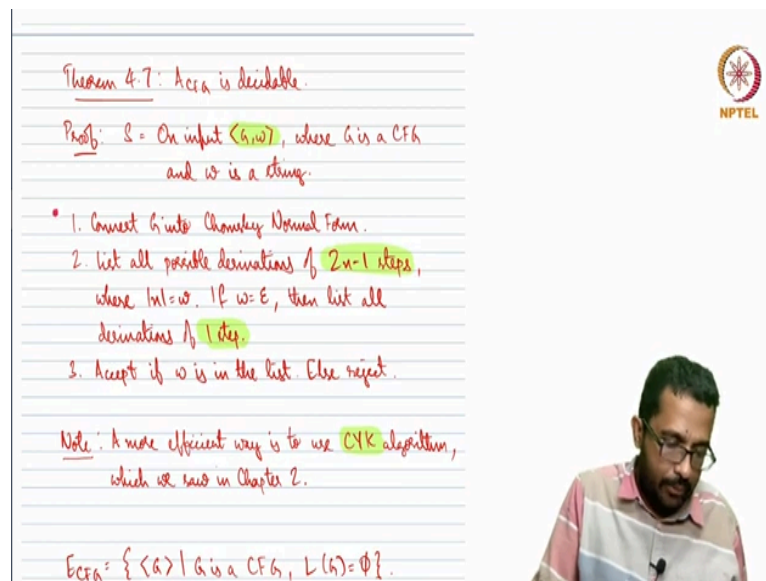 Theorem 4.7: A_CFG is decidable.
NPTEL
Proof: S = On input <G,w>, where G is a CFG
and w is a string.
1. Convert G into Chomsky Normal Form.
2. List all possible derivations of 2n-1 steps,
where |n|=w. If w=ε, then list all
derivations of 1 step.
3. Accept if w is in the list. Else reject.
Note: A more efficient way is to use CYK algorithm,
which we saw in Chapter 2.
E_CFG = {<G> | G is a CFG, L(G)=φ}.